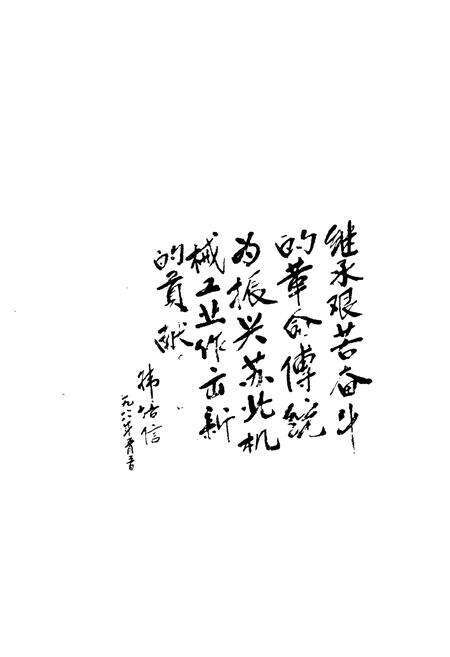 继承艰苦奋斗
的革命传统
为振兴苏北机
械工业作出新
的贡献
韩培信
一九八六年